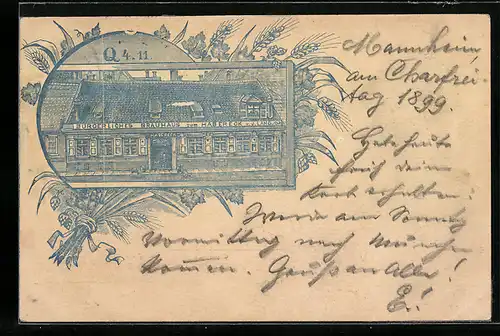 Q 4. 11.
BÜRGERLICHES BRAUHAUS ZUM HABERECK
Mannheim,
am Charfrei-
tag 1899.
Habe heute
früh deine
Karte erhalten:
Werde am Sonntag
Vormittag nach München
kommen. Gruß an Alle!
E.!